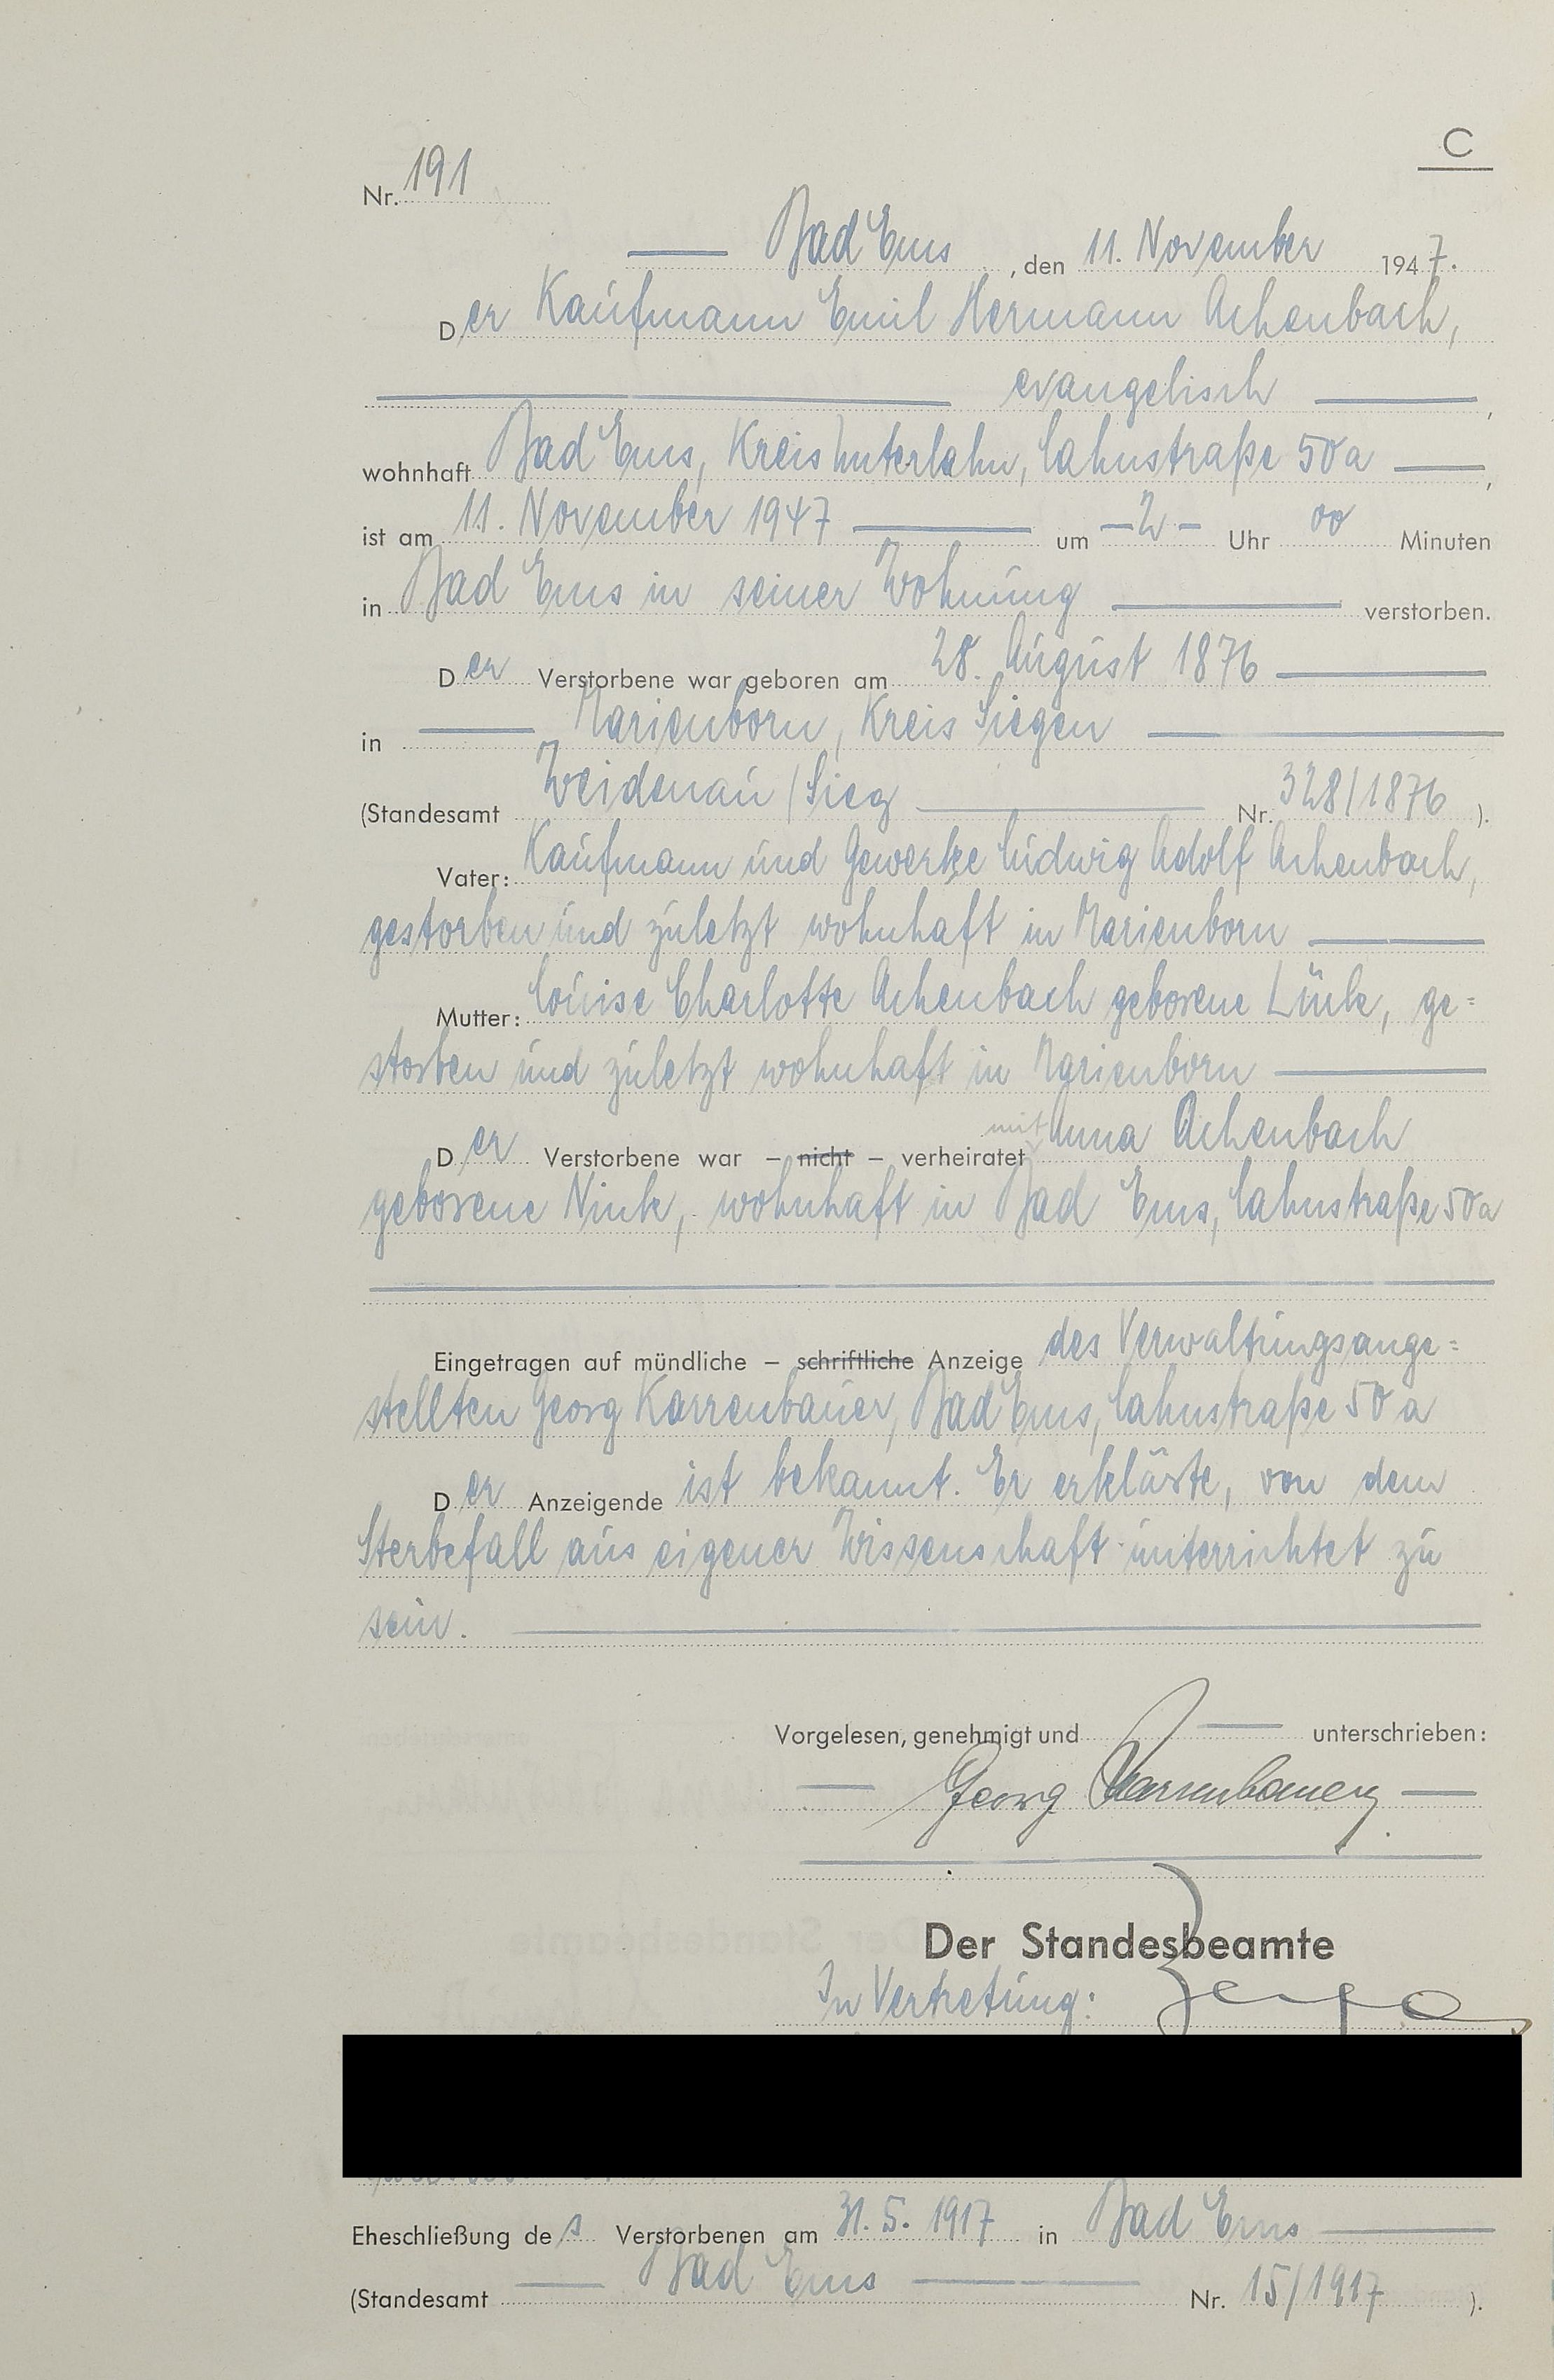 C
Nr. 191
Bad Ems, den 11. November 1947.
Der Kaufmann Emil Hermann Achenbach,
evangelisch,
wohnhaft Bad Ems, Kreis Unterlahn, Lahnstraße 50a,
ist am 11. November 1947 um -2- Uhr 00 Minuten
in Bad Ems in seiner Wohnung verstorben.
Der Verstorbene war geboren am 28. August 1876
in Marienborn, Kreis Siegen
(Standesamt Weidenau/Sieg Nr. 328/1876).
Vater: Kaufmann und Gewerke Ludwig Adolf Achenbach,
gestorben und zuletzt wohnhaft in Marienborn
Mutter: Louise Charlotte Achenbach geborene Lück, ge=
storben und zuletzt wohnhaft in Marienborn
Der Verstorbene war – nicht – verheiratet mit Anna Achenbach
geborene Nink, wohnhaft in Bad Ems, Lahnstraße 50a
Eingetragen auf mündliche – schriftliche Anzeige des Verwaltungsange=
stellten Georg Karrenbauer, Bad Ems, Lahnstraße 50a
Der Anzeigende ist bekannt. Er erklärte, von dem
Sterbefall aus eigener Wissenschaft unterrichtet zu
sein.
Vorgelesen, genehmigt und unterschrieben:
Georg Karrenbauer
Der Standesbeamte
In Vertretung:
Eheschließung des Verstorbenen am 31.5.1917 in Bad Ems
(Standesamt Bad Ems Nr. 15/1917).